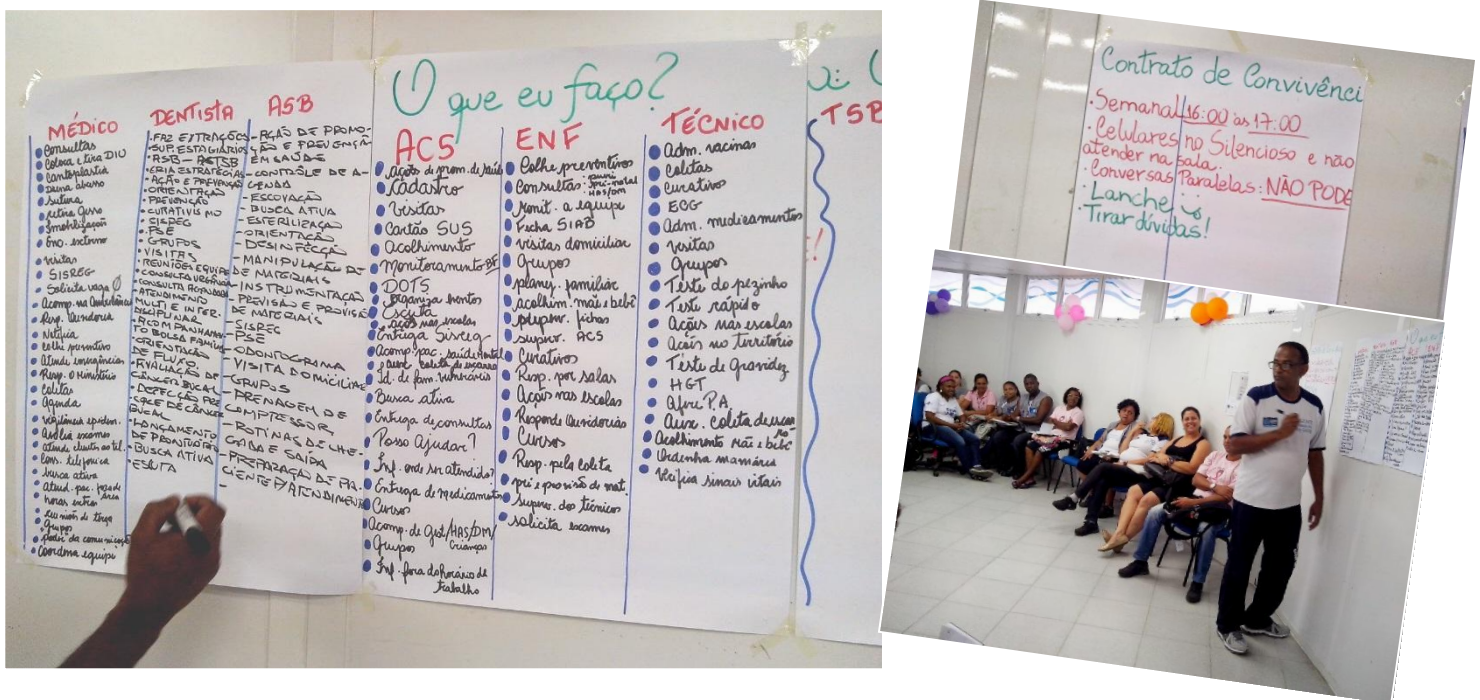 O que eu faço?
MÉDICO
Consultas
Coloca e tira DIU
Cantoplastia
Drena abscesso
Sutura
retira Gesso
Imobilização
Enc. externo
visitas
SISREG
Solicita vaga Ø
Acomp. na Ambulância
Resp. Ouvidoria
Notifica
Colhe preventivo
Atende emergências
Resp. o Ministério
Coletas
Agenda
vigilância epidem.
Avalia exames
atende clientes ao tel.
Cons. telefônica
busca ativa
Atend. pac. fora de área
horas extras
reuniões de terça
Grupos
poder da comunicação
Coordena equipe
DENTISTA
FAZ EXTRAÇÕES
SUP. ESTAGIÁRIOS
ASB - TSB
CRIA ESTRATÉGIAS
AÇÃO E PREVENÇÃO
ORIENTAÇÃO
PREVENÇÃO
CURATIVISMO
SISREG
PSE
GRUPOS
VISITAS
REUNIÕES EQUIPE
CONSULTA URGÊNCIA
CONSULTA AGENDADA
ATENDIMENTO
MULTI E INTER-
DISCIPLINAR
ACOMPANHAMEN
TO BOLSA FAMÍLIA
ORIENTAÇÃO
DE FLUXO
AVALIAÇÃO DE
CÂNCER BUCAL
DETECÇÃO PRE
COCE DE CÂNCER
BUCAL
LANÇAMENTO
DE PRONTUÁRIO
BUSCA ATIVA
ESCUTA
ASB
- AÇÃO DE PROMO-
ÇÃO E PREVENÇÃ
EM SAÚDE
- CONTRÔLE DE A-
GENDA
- ESCOVAÇÃO
- BUSCA ATIVA
- ESTERILIZAÇÃO
- ORIENTAÇÃO
- DESINFECÇÃO
- MANIPULAÇÃO DE
DE MATERIAIS
- INSTRUMENTAÇÃO
- PREVISÃO E PROVISÃO
DE MATERIAIS
- SISREG
- PSE
- ODONTOGRAMA
- VISITA DOMICILIAR
- GRUPOS
- DRENAGEM DE
COMPRESSOR
- ROTINAS DE CHE-
GADA E SAÍDA
- PREPARAÇÃO DE PA-
CIENTE P/ATENDIMENTO
-
ACS
ações de prom. de saúde
Cadastro
Visitas
Cartão SUS
Acolhimento
Monitoramento BF
DOTS
Organiza eventos
Escuta
Ações nas escolas
Entrega Sisreg
Acomp. pac. saúde mental
Aux. coleta de exames
Id. de fam. vulneráveis
Busca ativa
Entrega de consultas
Posso Ajudar?
Inf. onde ser atendido?
Entrega de medicamentos
Cursos
Acomp. de Gest/HAS/DM/
Crianças
Grupos
Inf. fora do horário de
trabalho
ENF
Colhe preventivos
Consultas: pueri
pré-natal
HAS/DM
Monit. a equipe
Ficha SIAB
visitas domiciliar
Grupos
planej. familiar
acolhim. mãe e bebê
preparo. fichas
superv. ACS
Curativos
Resp. por salas
Ações nas escolas
Responde Ouvidorias
Cursos
Resp. pela coleta
pre e provisão de mat.
Superv. dos técnicos
Solicita exames
TÉCNICO
Adm. vacinas
Coletas
Curativos
ECG
Adm. medicamentos
Visitas
Grupos
Teste do pezinho
Teste rápido
Ações nas escolas
Ações no território
Teste de Gravidez
HGT
Afere P.A
Aux. Coleta de escarro
Acolhimento Mãe e bebê
Ordenha mamária
Verifica sinais vitais
TSB
Contrato de Convivênci
Semanal 16:00 às 17:00
Celulares no Silencioso e não
atender na sala.
Conversas Paralelas: NÃO PODE
Lanche
Tirar dúvidas!